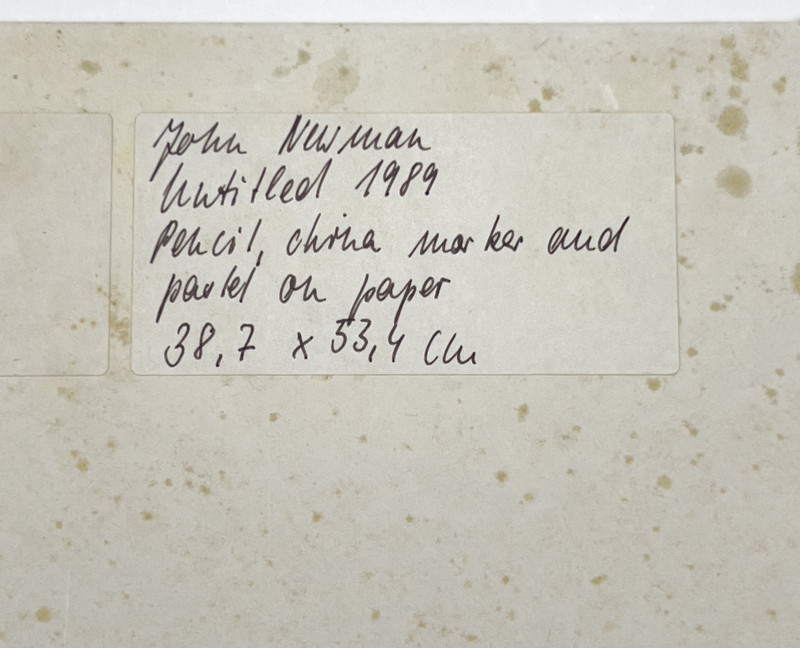 John Newman
Untitled 1989
Pencil, china marker and
pastel on paper
38,7 x 53,4 cm